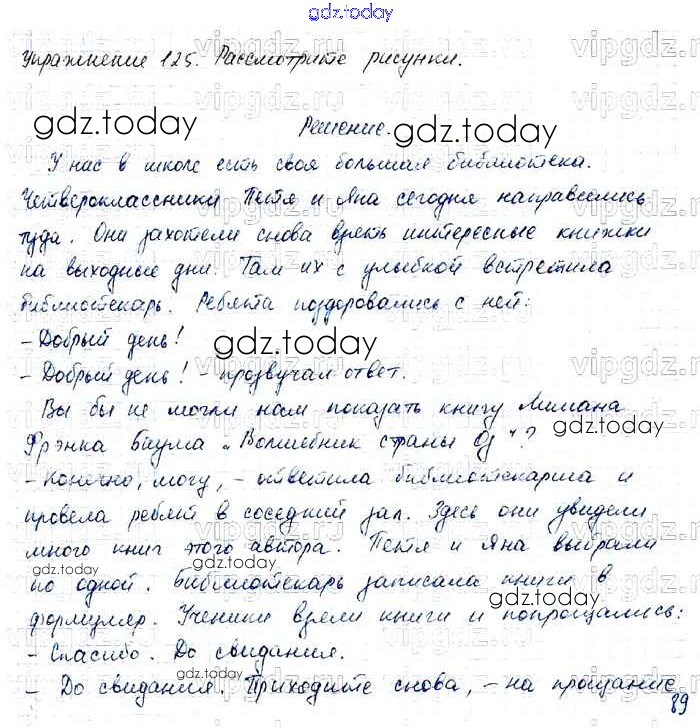 gdz.today
Упражнение 125. Рассмотрите рисунки.
gdz.today
Решение.
gdz.today
У нас в школе есть своя большая библиотека.
Четвероклассники Петя и Яна сегодня направились
туда. Они захотели снова взять интересные книжки
на выходные дни. Там их с улыбкой встретила
библиотекарь. Ребята поздоровались с ней:
– Добрый день!
gdz.today
– Добрый день! – прозвучал ответ.
Вы бы не могли нам показать книгу Лимана
Фрэнка Баума „Волшебник страны Оз"?
gdz.today
– Конечно, могу, – ответила библиотекарша и
провела ребят в соседний зал. Здесь они увидели
много книг этого автора. Петя и Яна выбрали
gdz.today
по одной. Библиотекарь записала книги в
gdz.today
формуляр. Ученики взяли книги и попрощались:
– Спасибо. До свидания.
gdz.today
– До свидания. Приходите снова, – на прощание
89
vipgdz.ru